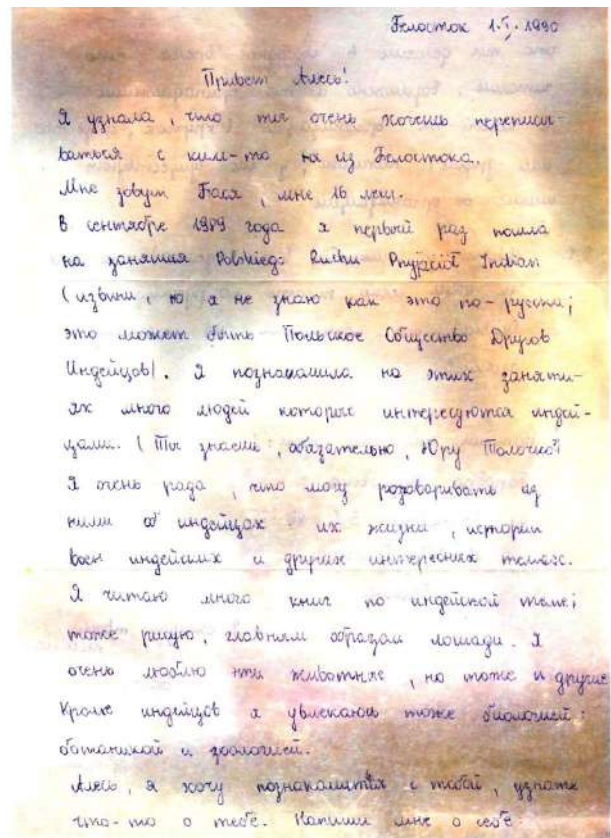 Белосток 1.I.1990
Привет Алесь!
Я узнала, что ты очень хочешь переписы-
ваться с ким-то на из Белостока.
Мне зовут Бася, мне 16 лет.
В сентябре 1989 года я первый раз пошла
на занятия Polskiego Ruchu Przyjaciół Indian
(извини, но я не знаю как это по-русски;
это может быть Польское Общество Другов
Индейцов). Я познакамила на этих заняти-
ях много людей которые интересуются индей-
цами. (Ты знаешь, обязательно, Юру
Я очень рада, что могу розговаривать
ними об индейцах их жизни, истории
воен индейских и других интересних темах.
Я читаю много книг по индейской теме;
тоже рисую, главным образам лошади. Я
очень люблю эти животные, но тоже и другие
Кроме индейцов я увлекаюсь тоже биологией:
ботаникой и зоологией.
Алесь, я хочу познакамится с тобой, узнать
что-то о тебе. Напиши мне о себе.